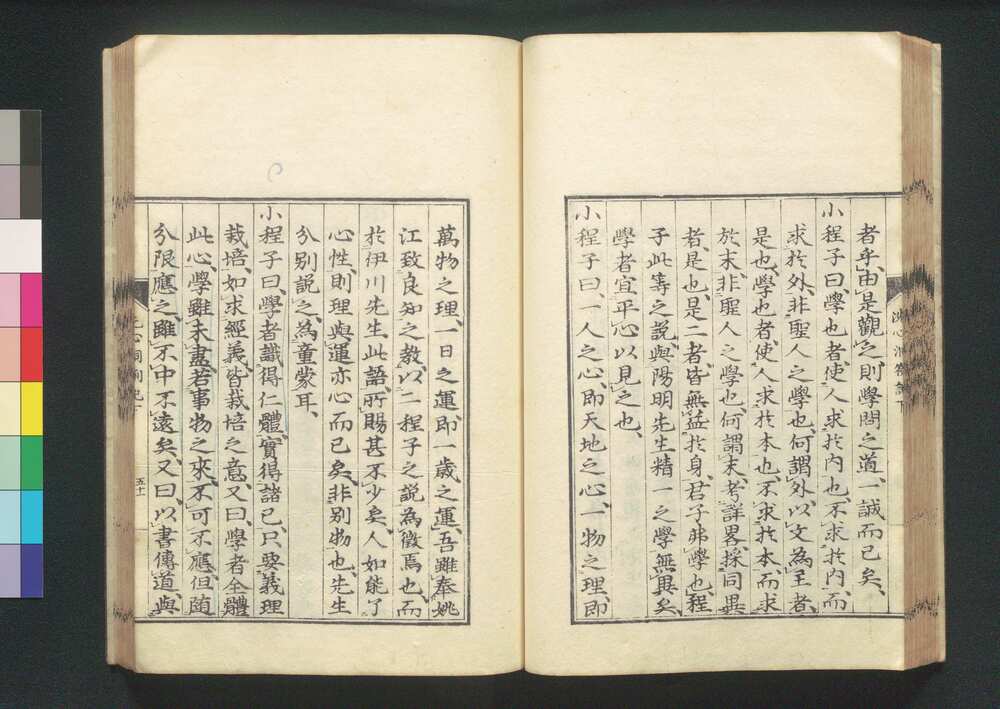 者乎、由是觀之則學問之道、一誠而已矣、
小程子曰、學也者使人求於内也、不求於内、而
求於外、非聖人之學也、何謂外、以文為主者、
是也、學也者使人求於本也、不求於本、而求
於末、非聖人之學也、何謂末、考詳畧、採同異
者、是也、是二者皆無益於身、君子弗學也、程
子此等之說、與陽明先生精一之學無異矣、
學者宜平心以見之也、
小程子曰、一人之心、即天地之心、一物之理、即
萬物之理、一日之運、即一歳之運、吾雖奉姚
江致良知之教、以二程子之說為徵焉也、而
於伊川先生此語所賜甚不少矣、人如能了
心性、則理與運亦心而已矣、非別物也、先生
分別說之、為童蒙耳、
小程子曰、學者識得仁體、實得諸己、只要義理
栽培、如求經義、皆栽培之意、又曰、學者全體
此心、學雖未盡、若事物之來、不可不應、但随
分限應之、雖不中不遠矣、又曰、以書傳道、與
洗心洞劄記下
五十